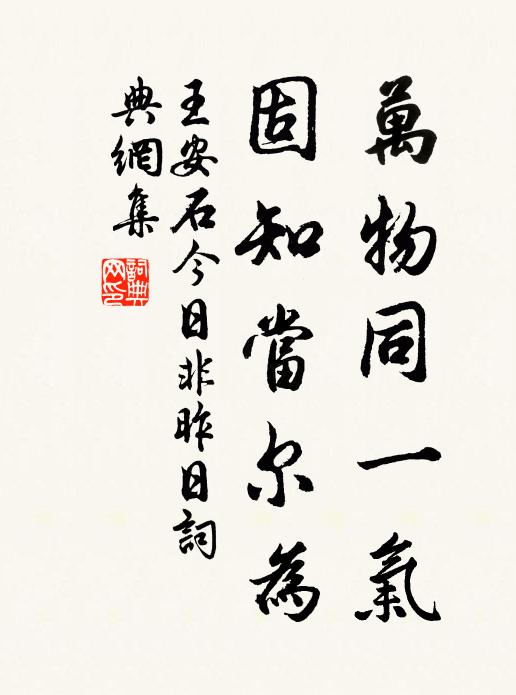 萬物同一氣
固知當尔為
王安石今日非昨日詞
典網集
詞典
网印